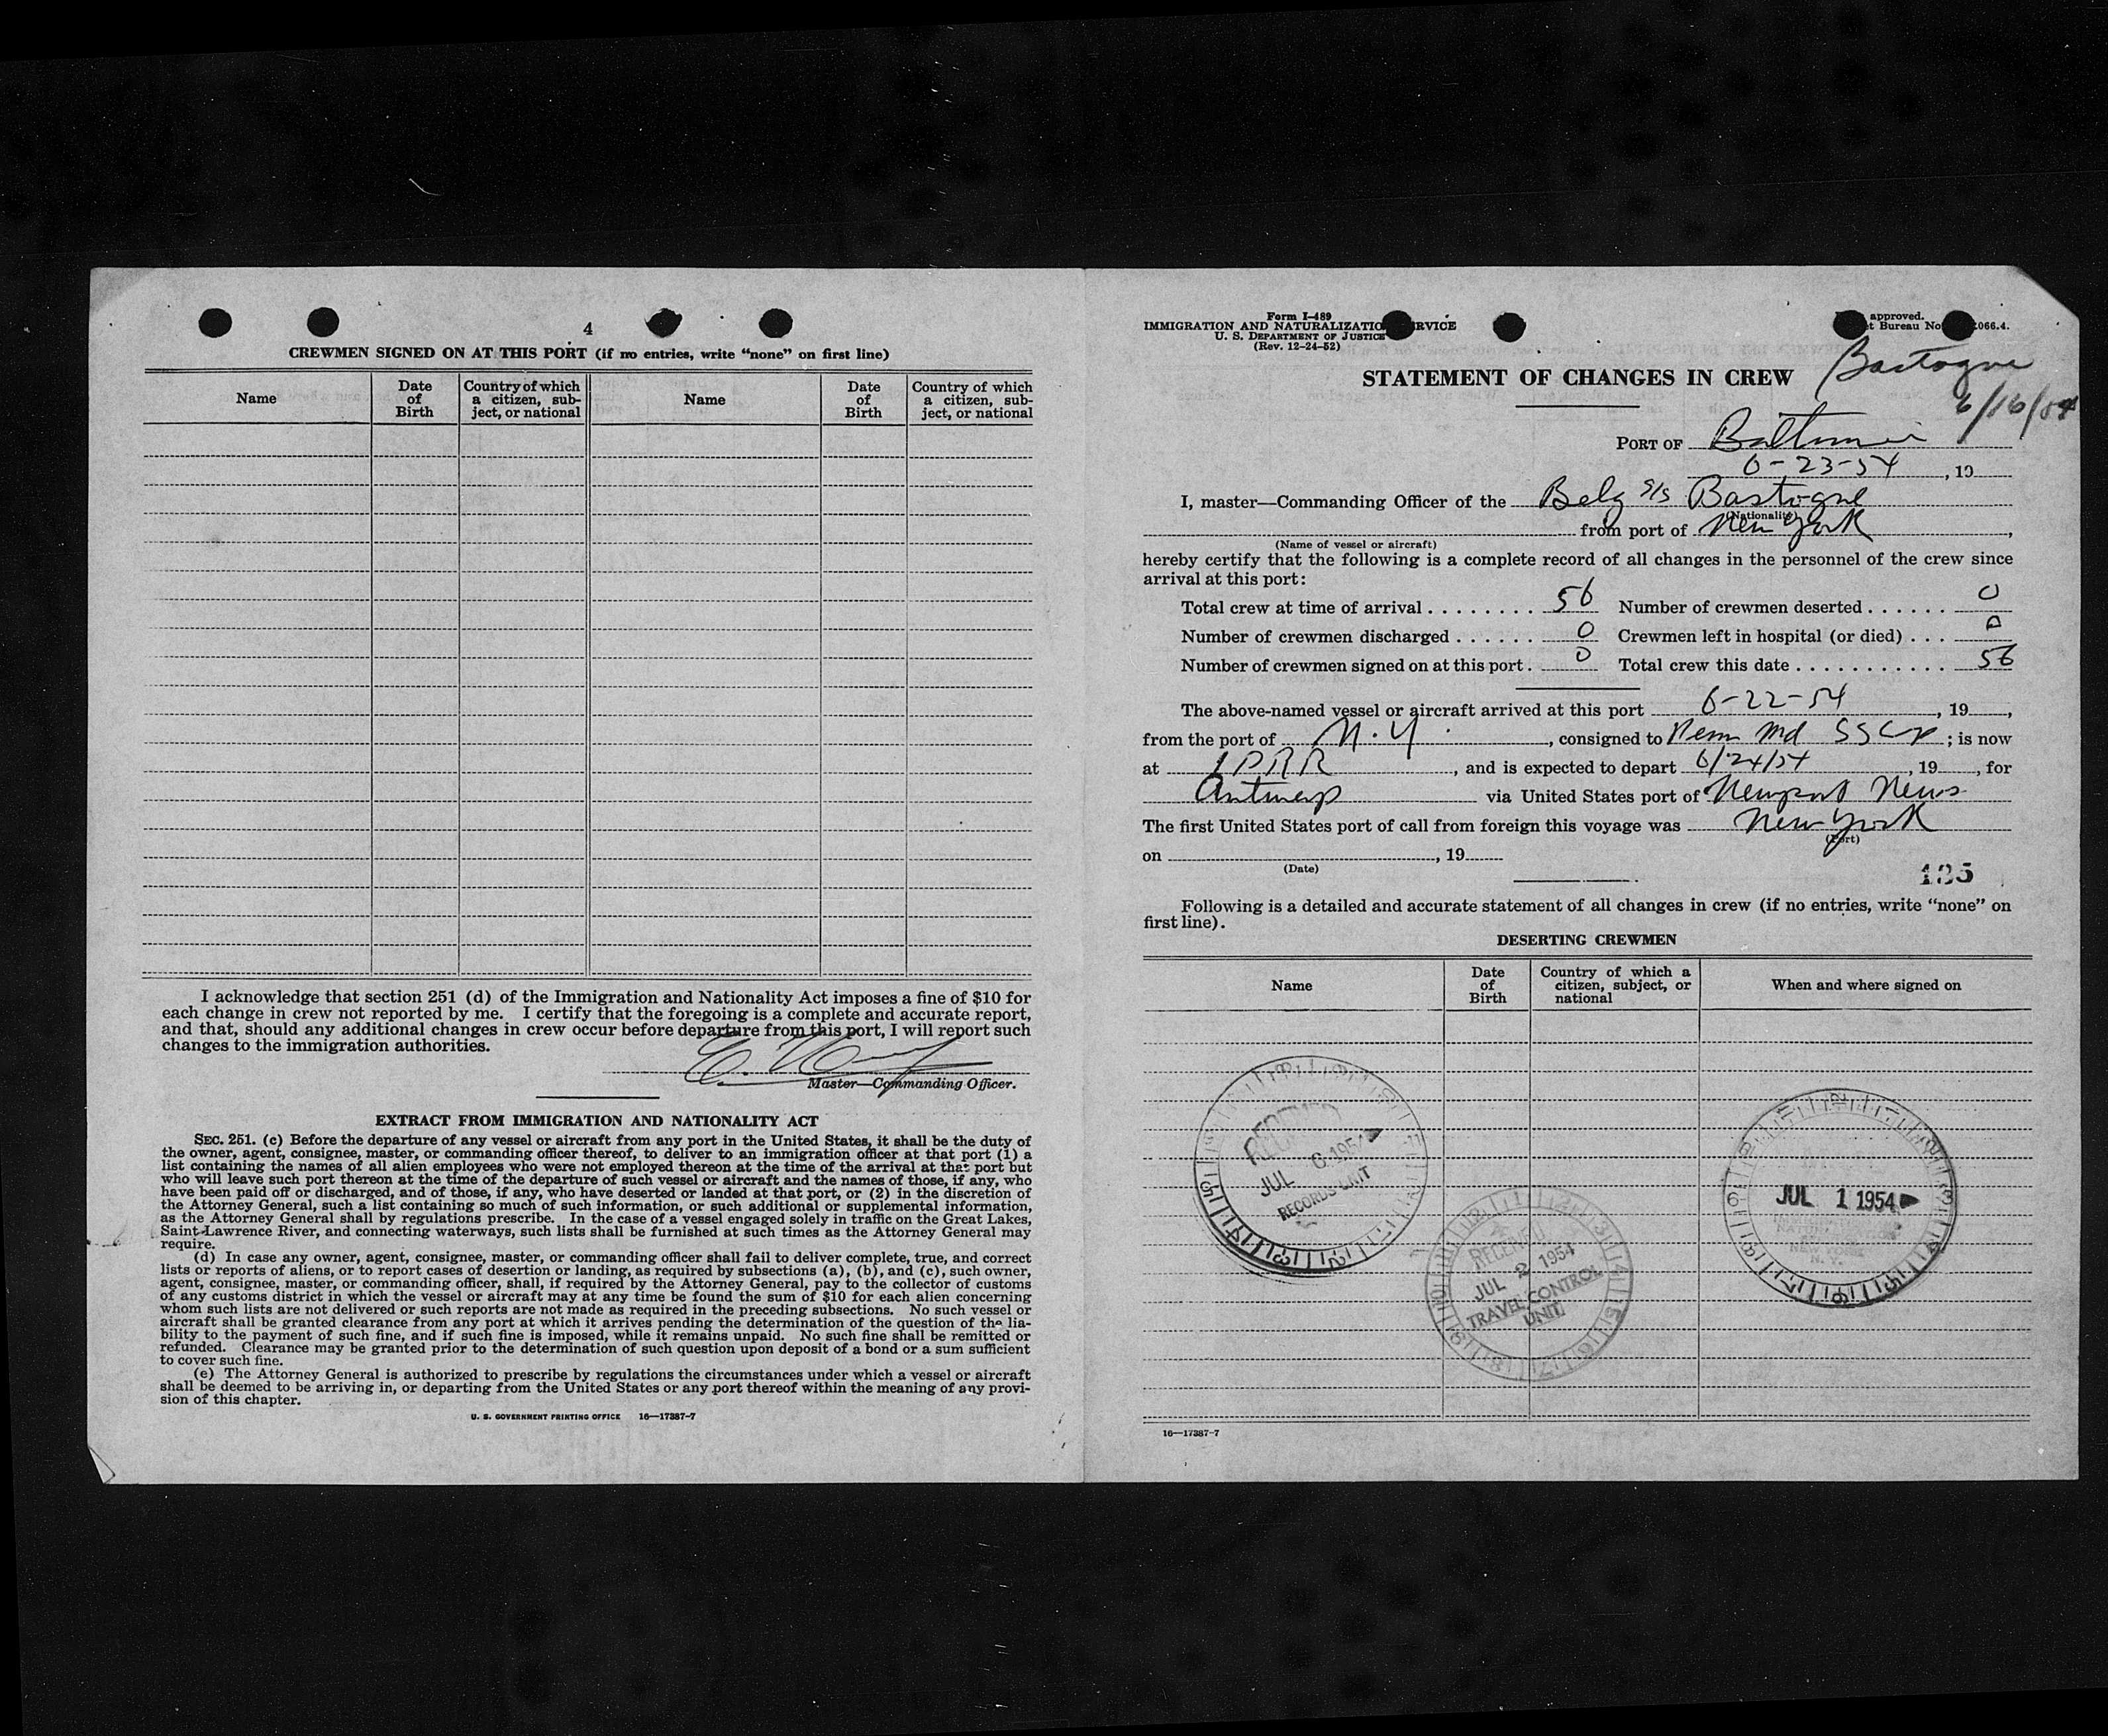 4
CREWMEN SIGNED ON AT THIS PORT (if no entries, write “none” on first line)
Name Date of Birth Country of which a citizen, subject, or national Name Date of Birth Country of which a citizen, subject, or national
I acknowledge that section 251 (d) of the Immigration and Nationality Act imposes a fine of $10 for
each change in crew not reported by me. I certify that the foregoing is a complete and accurate report,
and that, should any additional changes in crew occur before departure from this port, I will report such
changes to the immigration authorities.
Master—Commanding Officer.
EXTRACT FROM IMMIGRATION AND NATIONALITY ACT
SEC. 251. (c) Before the departure of any vessel or aircraft from any port in the United States, it shall be the duty of
the owner, agent, consignee, master, or commanding officer thereof, to deliver to an immigration officer at that port (1) a
list containing the names of all alien employees who were not employed thereon at the time of the arrival at that port but
who will leave such port thereon at the time of the departure of such vessel or aircraft and the names of those, if any, who
have been paid off or discharged, and of those, if any, who have deserted or landed at that port, or (2) in the discretion of
the Attorney General, such a list containing so much of such information, or such additional or supplemental information,
as the Attorney General shall by regulations prescribe. In the case of a vessel engaged solely in traffic on the Great Lakes,
Saint Lawrence River, and connecting waterways, such lists shall be furnished at such times as the Attorney General may
require.
(d) In case any owner, agent, consignee, master, or commanding officer shall fail to deliver complete, true, and correct
lists or reports of aliens, or to report cases of desertion or landing, as required by subsections (a), (b), and (c), such owner,
agent, consignee, master, or commanding officer, shall, if required by the Attorney General, pay to the collector of customs
of any customs district in which the vessel or aircraft may at any time be found the sum of $10 for each alien concerning
whom such lists are not delivered or such reports are not made as required in the preceding subsections. No such vessel or
aircraft shall be granted clearance from any port at which it arrives pending the determination of the question of the lia-
bility to the payment of such fine, and if such fine is imposed, while it remains unpaid. No such fine shall be remitted or
refunded. Clearance may be granted prior to the determination of such question upon deposit of a bond or a sum sufficient
to cover such fine.
(e) The Attorney General is authorized to prescribe by regulations the circumstances under which a vessel or aircraft
shall be deemed to be arriving in, or departing from the United States or any port thereof within the meaning of any provi-
sion of this chapter.
U. S. GOVERNMENT PRINTING OFFICE 16—17387-7
Form I-489
IMMIGRATION AND NATURALIZATION SERVICE
U. S. DEPARTMENT OF JUSTICE
(Rev. 12-24-52)
approved.
Bureau No. 066.4.
Bastogne
6/16/54
STATEMENT OF CHANGES IN CREW
PORT OF Baltimore
6-23-54, 19
I, master—Commanding Officer of the Belg s/s Bastogne
(Nationality)
from port of New York,
(Name of vessel or aircraft)
hereby certify that the following is a complete record of all changes in the personnel of the crew since
arrival at this port:
Total crew at time of arrival . . . . . . . . 56 Number of crewmen deserted . . . . . . 0
Number of crewmen discharged . . . . . . 0 Crewmen left in hospital (or died) . . . 0
Number of crewmen signed on at this port . 0 Total crew this date . . . . . . . . . . . 56
The above-named vessel or aircraft arrived at this port 6-22-54, 19,
from the port of N.Y., consigned to Penn Md SS Cp; is now
at PRR, and is expected to depart 6/24/54, 19, for
Antwerp via United States port of Newport News
The first United States port of call from foreign this voyage was New York
(Port)
on , 19
(Date)
135
Following is a detailed and accurate statement of all changes in crew (if no entries, write “none” on
first line).
DESERTING CREWMEN
Name Date of Birth Country of which a citizen, subject, or national When and where signed on
RECEIVED
JUL 6 1954
RECORDS UNIT
RECEIVED
JUL 2 1954
TRAVEL CONTROL
UNIT
JUL 1 1954
NEW YORK
N. Y.
16—17387-7